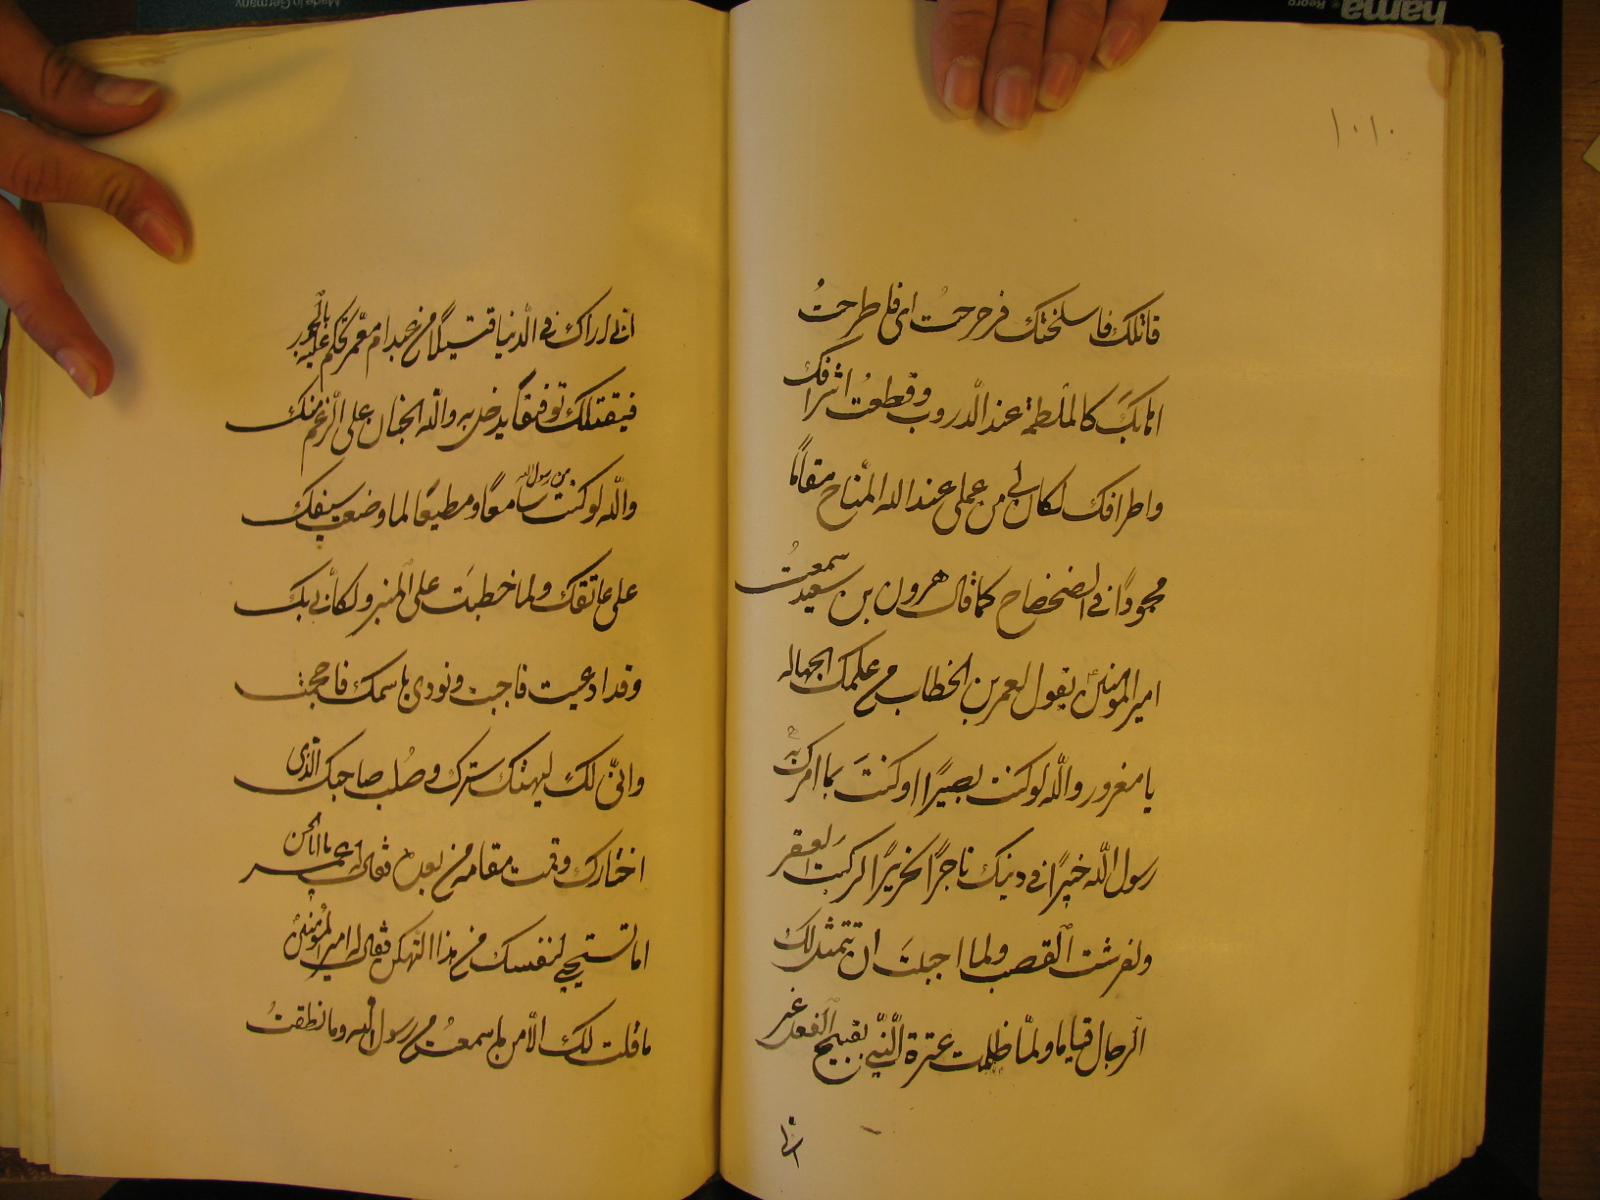 hama
Made in Germany
١٠١٠
قاتلك فاسلختك فرحرحت اى فلطرحت
امامك كالملطمة عند الدروب وقطعت اشرافك
واطرافك لكان لي من عملى عند الله المناح مقامًا
مجودًا في الضحضاح كما قال هرون بن سعيد سمعت
امير المؤمنين يقول لعمر بن الخطاب من علمك الجهاله
يا مغرور والله لو كنت بصيرًا او كنتَ بما امرك به
رسول الله خبيرًا في دينك تاجرًا نحريرًا لركبت العقر
ولفرشت القصب ولما احببت ان تتمثل لك
الرجال قياما ولما ظلمت عترة النّبي بقبيح الفعل غير
انّي
انى اراك في الدنيا قتيلًا من عبد ام معمر تحكم عليه بالجور
فيقتلك توفيقًا يدخل به والله الجنان على الرغم منك
والله لو كنت من رسول الله سامعًا ومطيعًا لما وضعت سيفك
على عاتقك ولما خطبتَ على المنبر ولكأنّي بك
وقد ادعيت فاجبت ونودى باسمك فاحجمت
وانّ لك ليهتك سترك وصُلب صاحبك الذى
اختارك وقمت مقامه من بعده فقال له عمر يا ابا الحسن
اما تستحيي لنفسك من هذا التهكن فقال له امير المؤمنين
ما قلت لك الّا من ما سمعتُ من رسول الله وما نطقتُ